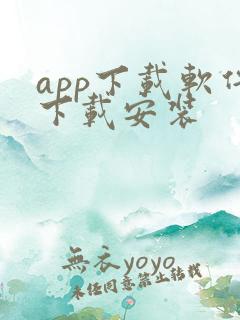 app下載軟件
下載安裝
無衣yoyo
未经同意禁止转载